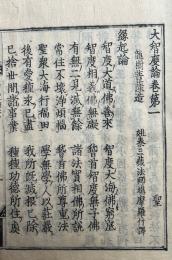 大智度論卷第一 聖
龍樹菩薩造
姚秦三藏法師鳩摩羅什譯
緣起論
智度大道佛善來 智度大海佛窮底
智度相義佛無礙 稽首智度無子佛
有無二見滅無餘 諸法實相佛所說
常住不壞淨煩惱 稽首佛所尊重法
聖衆大海行福田 學無學人以莊嚴
後有愛種永已盡 我所既滅根已除
已捨世間諸事業 種種功德所住處